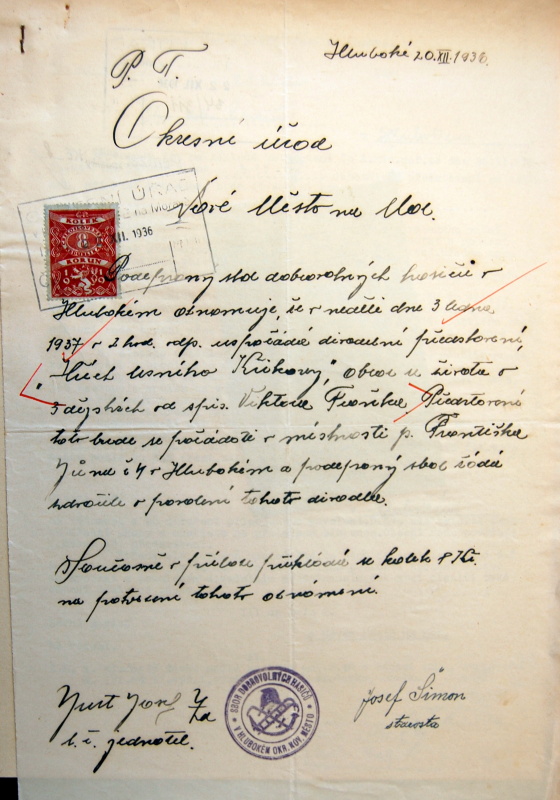 Hluboké 20.XII.1936.
P. T.
Okresní úřad
Nové Město na Mor.
KOLEK
8
KORUN
XII. 1936
Podepsaný sbor dobrovolných hasičů v
Hlubokém oznamuje, že v neděli dne 3 ledna
1937 v 2 hod. odp. uspořádá divadelní představení,
"Hřích lesního Křikavy", obraz ze života o
3 dějstvích od spis. Viktora Představení
toto bude se pořádati v místnosti p. Františka
č 4 v Hlubokém a podepsaný sbor žádá
zdvořile o povolení tohoto divadla.
Současně v příloze přikládá se kolek 8 Kč.
na potvrzení tohoto oznámení.
Josef
t. č. jednatel.
SBOR DOBROVOLNÝCH HASIČŮ
V HLUBOKÉM OKR. NOV. MĚSTO
Josef Šimon
starosta